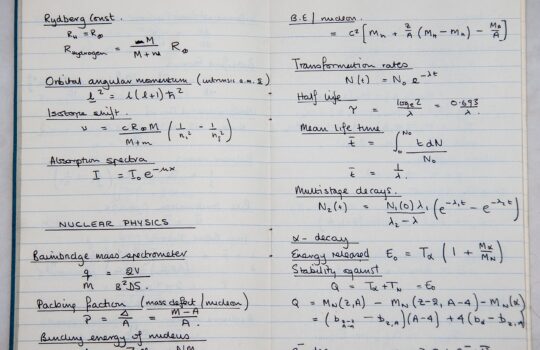 Rydberg Const.
R∞ = R⊗
Rhydrogen = M / (M+m) R⊗
Orbital angular momentum (intrinsic a.m. s)
l² = l(l+1)ħ²
Isotope shift.
ν = cR⊗M / (M+m) (1/n₁² - 1/nⱼ²)
Absorption spectra
I = I₀e^(-μx)
NUCLEAR PHYSICS
Bainbridge mass spectrometer
q/m = 2V / B²DS.
Packing fraction (mass defect/nucleon)
P = Δ/A = (M-A)/A.
Binding energy of nucleus
B.E / nucleon.
= c² [Mn + Z/A (MH - Mn) - MA/A]
Transformation rates
N(t) = N₀e^(-λt)
Half life
τ = loge2/λ = 0.693/λ.
Mean life time
t̄ = ∫₀^N₀ t dN / N₀
t̄ = 1/λ.
Multistage decays.
N₂(t) = N₁(0)λ₁ / (λ₂-λ) (e^(-λ₁t) - e^(-λ₂t))
α-decay
Energy released E₀ = Tα (1 + Mα/MN)
Stability against
Q = Tα+TN = E₀
Q = MN(Z,A) - MN(Z-2,A-4) - MN(α)
= (bZ-2,A-4 - bZ,A)(A-4) + 4(bα - bZ,A)